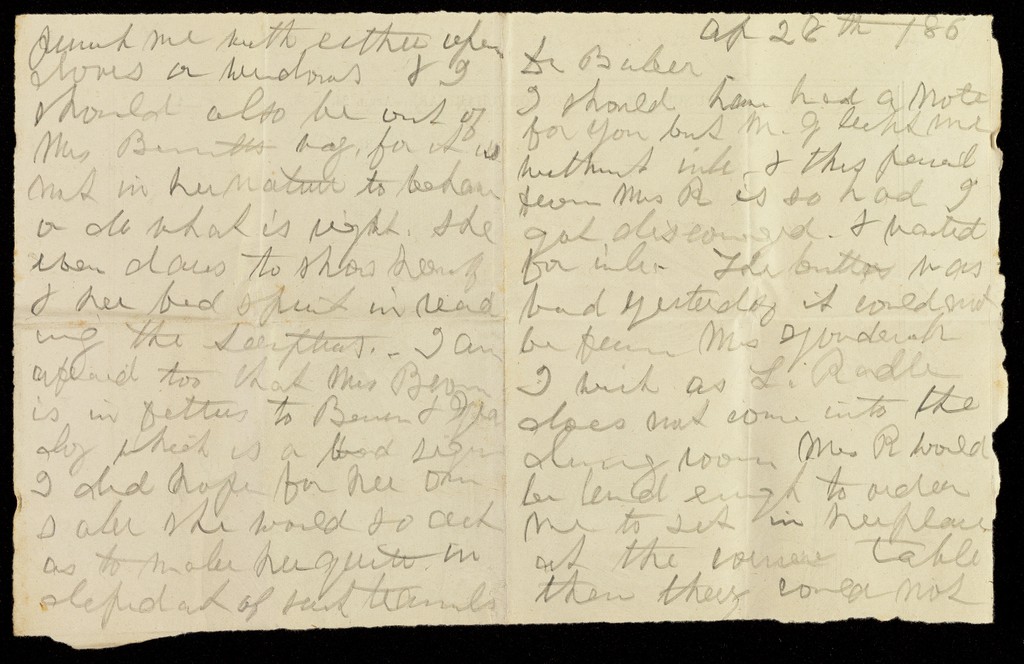 Ap 28th 186
Dr Baker
I should have had a note
for you but Mr. G left me
without ink - & this pencil
from Mrs R is so bad I
got discouraged. & waited
for ink - The butter was
bad yesterday it could not
be from Mrs
I wish as L. Radle
does not come into the
dining room Mrs R would
be kind enugh to order
me to set in her place
at the corner table
then they could not
me with either open
doors or windows & I
should also be out of
Mrs way, for it is
not in her nature to behave
or do what is right. She
even dares to
& her bed in read
ing the - I am
afraid too that Mrs Brown
is in fetters to &
which is a bad sign
I did hope for her own
sake she would so act
as to make her quite in
dependent of such